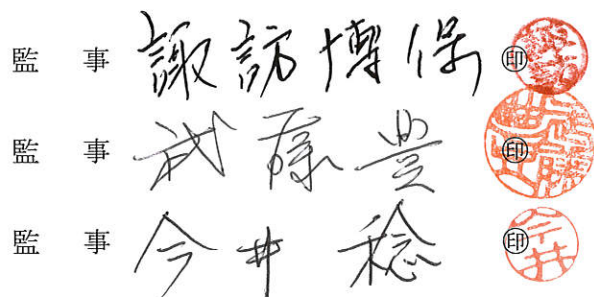 監 事 諏訪博保 ㊞
監 事 武藤豊 ㊞
監 事 今井稔 ㊞